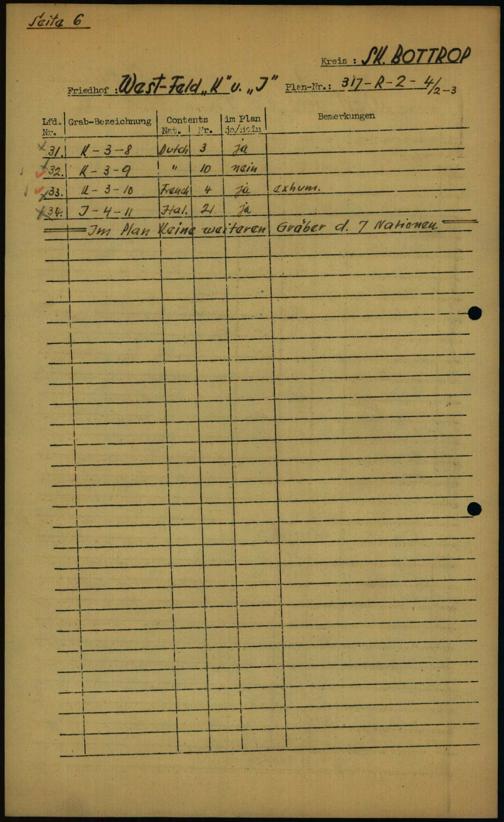 Seite 6
Kreis : SK. BOTTROP
Friedhof : West-Feld „K" u. „J" Plan-Nr.: 317-R-2-4/2-3
Lfd. Nr. Grab-Bezeichnung Contents Nat. Nr. im Plan ja/nein Bemerkungen
31. K-3-8 Dutch 3 ja
32. K-3-9 " 10 nein
33. K-3-10 French 4 ja exhum.
34. J-4-11 Ital. 21 ja
Im Plan keine weiteren Gräber d. 7 Nationen